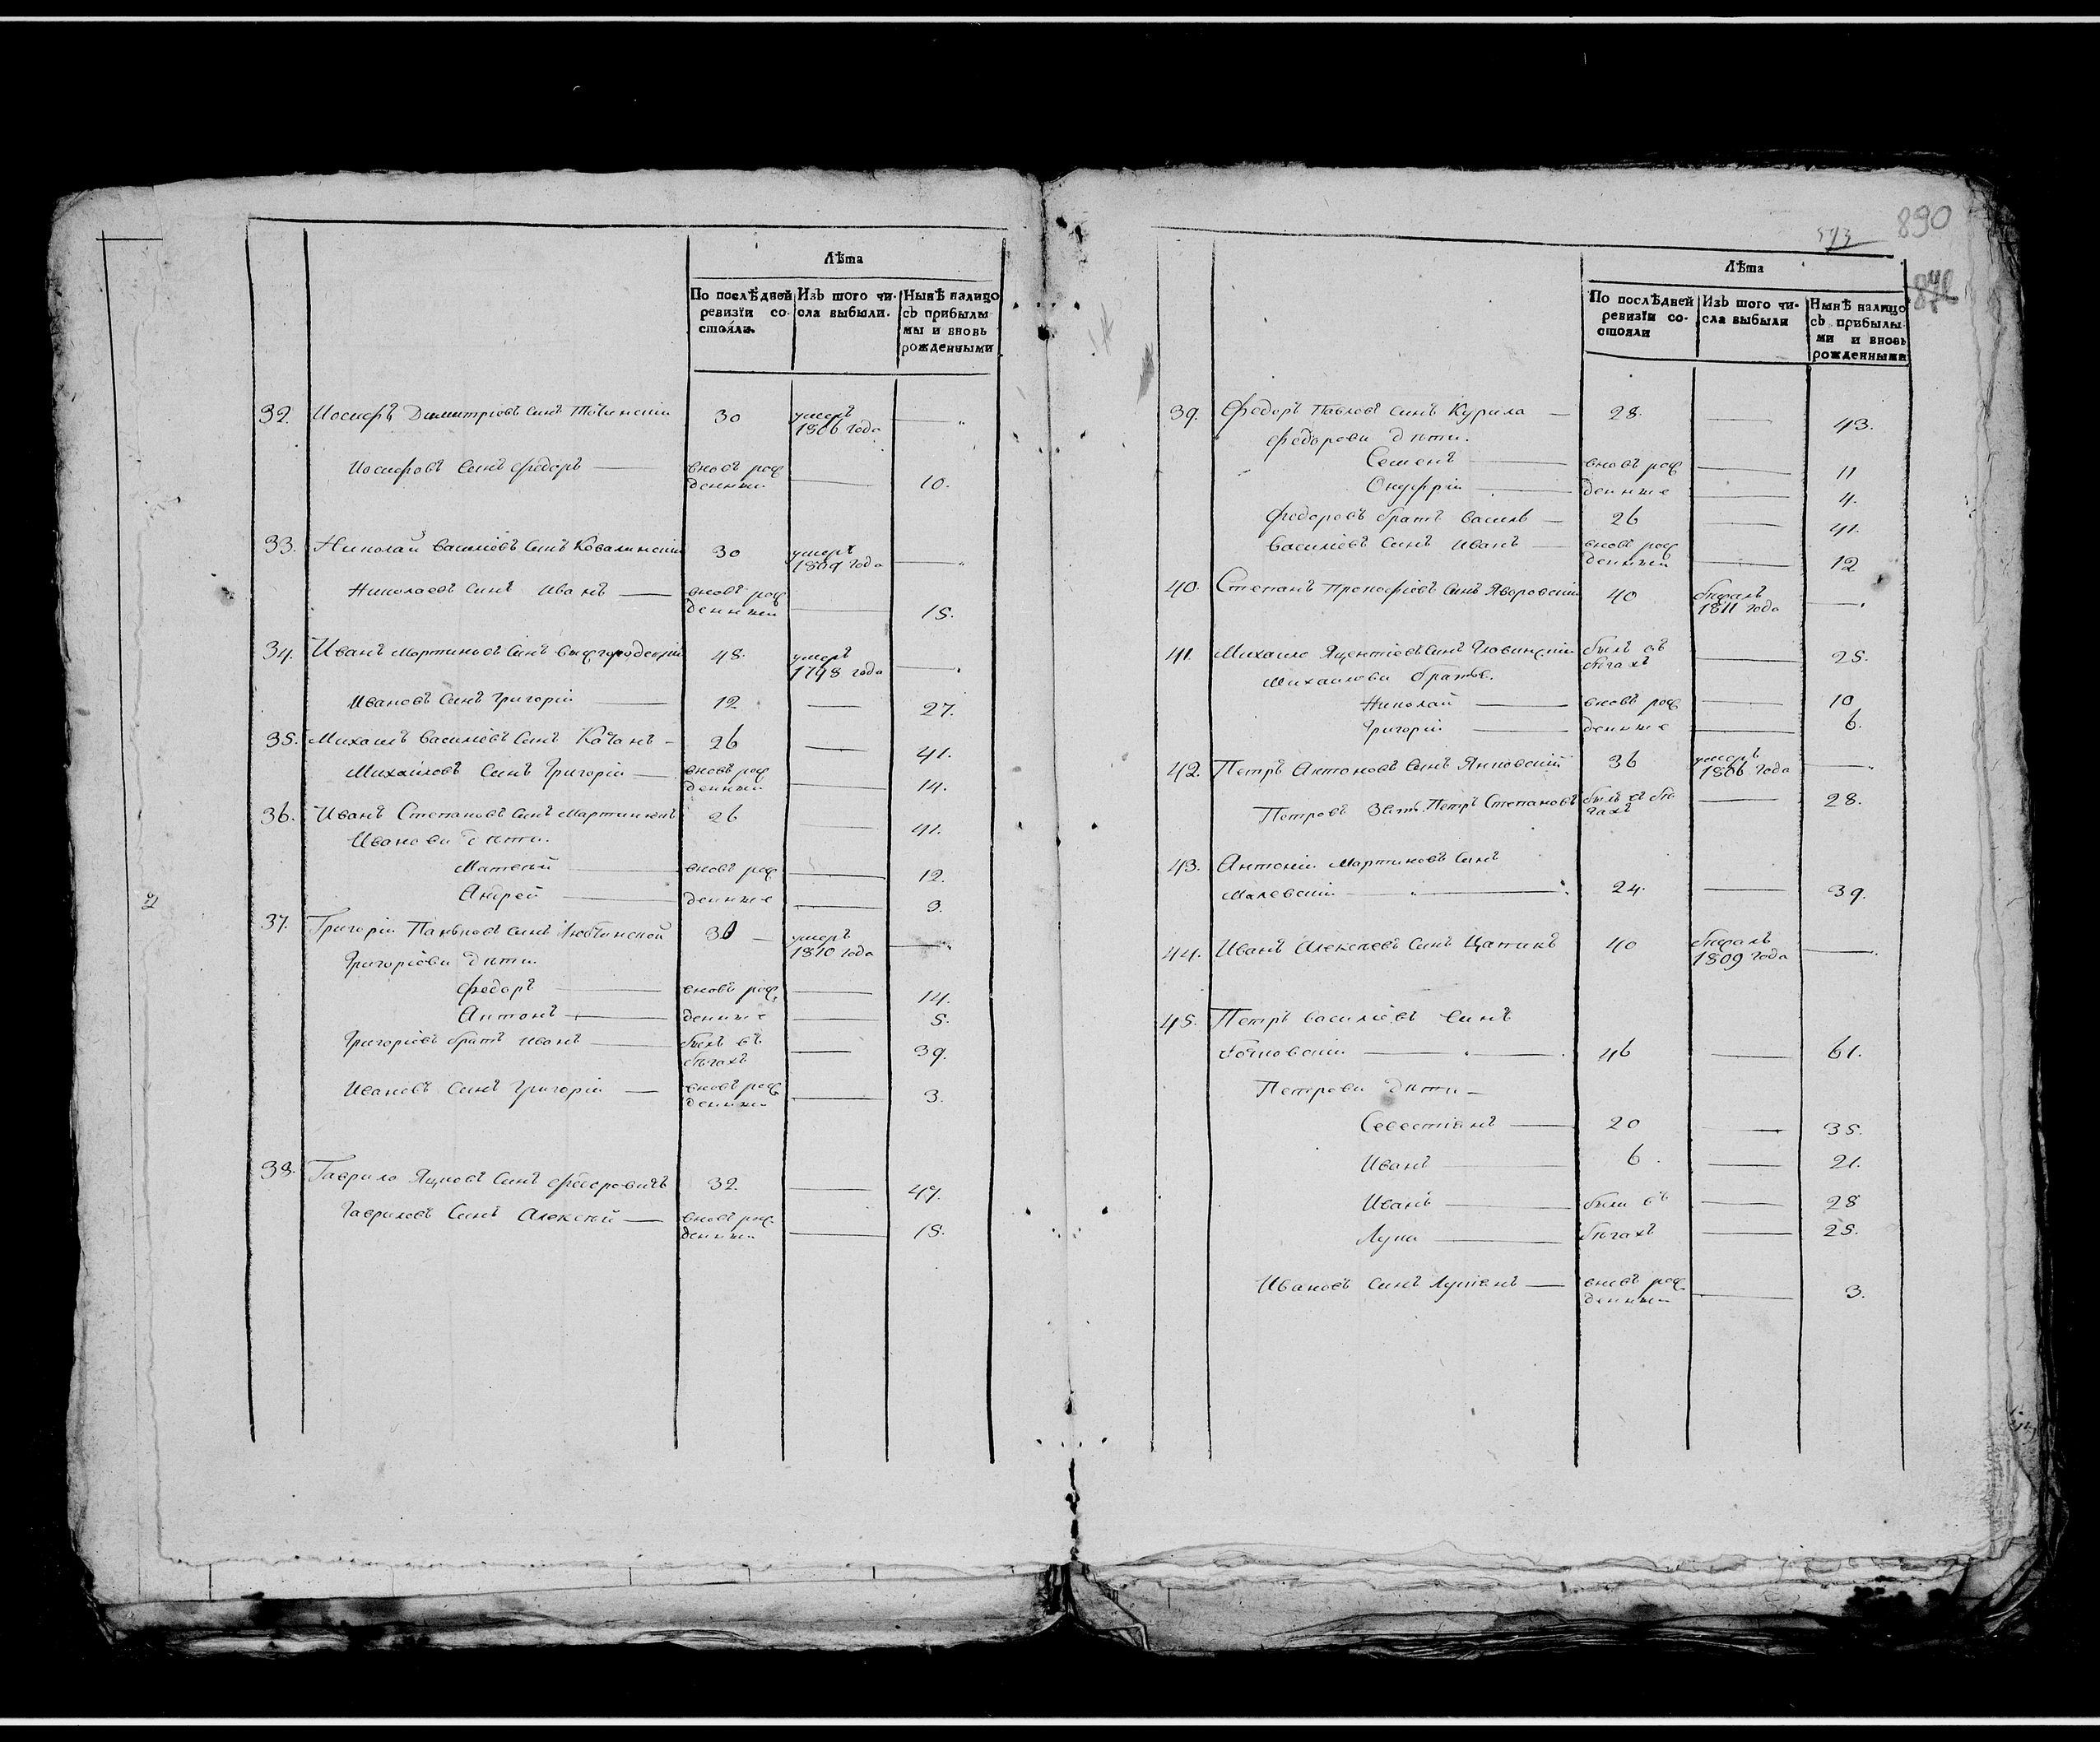 Лѣта
По послѣдней ревизіи со-стояли.
Изъ того чи-сла выбыли.
Нынѣ налицо съ прибылы-мы и вновь рожденными
32. Иосифъ Димитріовъ синъ Точинскій 30 умеръ 1806 года —
Иосифовъ синъ Федоръ — вновь рож денный — 10.
33. Николай Василіовъ синъ Ковалинскій 30 умеръ 1809 года —
Николаевъ синъ Иванъ — вновь рож денный — 15.
34. Иванъ Мартиновъ синъ Вышгородскій 48. умеръ 1798 года —
Ивановъ синъ Григорій — 12 — 27.
35. Михаилъ Василіовъ синъ Качанъ — 26 — 41.
Михайловъ синъ Григорій — вновь рож денный — 14.
36. Иванъ Степановъ синъ 26 — 41.
Иванови дѣти.
Матвѣй — вновь рож — 12.
Андрей — денные — 3.
37. Григорій синъ умеръ 1810 года —
Григоріови дѣти.
Федоръ — вновь рож — 14.
Антонъ — денные — 5.
Григоріовъ братъ Иванъ — былъ въ бѣгахъ — 39.
Ивановъ синъ Григорій — вновь рож денный — 3.
38. Гаврило Яцковъ синъ Федоровичъ 32. — 47.
Гавриловъ синъ Алексѣй — вновь рож денный — 15.
890
573
Лѣта
По послѣдней ревизіи со-стояли
Изъ того чи-сла выбыли
Нынѣ налицо съ прибылы-ми и вновь рожденными
39. Федоръ Павловъ синъ Курила — 28. — 43.
Федорови дѣти.
Семенъ — вновь рож — 11
Онуфрій — денные — 4.
Федоровъ братъ Василь — 26 — 41.
Василіовъ синъ Иванъ — вновь рож денный — 12
40. Степанъ Прокофіовъ синъ Яворовскій 40 бѣжалъ 1811 года —
41. Михайло Яцентіовъ синъ былъ въ бѣгахъ — 25.
Михайлови братья.
Николай — вновь рож — 10
Григорій — денные — 6.
42. Петръ Антоновъ синъ Янковскій 36 умеръ 1806 года —
Петровъ зять Петръ Степановъ былъ въ бѣ гахъ — 28.
43. Антоній Мартиновъ синъ
Малевскій — 24. — 39.
44. Иванъ Алексѣевъ синъ 40 бѣжалъ 1809 года —
45. Петръ Василіовъ синъ
46 — 61.
Петрови дѣти —
Севестіянъ — 20 — 35.
Иванъ — 6. — 21.
Иванъ — были въ — 28
Лука — бѣгахъ — 25.
Ивановъ синъ Лукіянъ — вновь рож денный — 3.